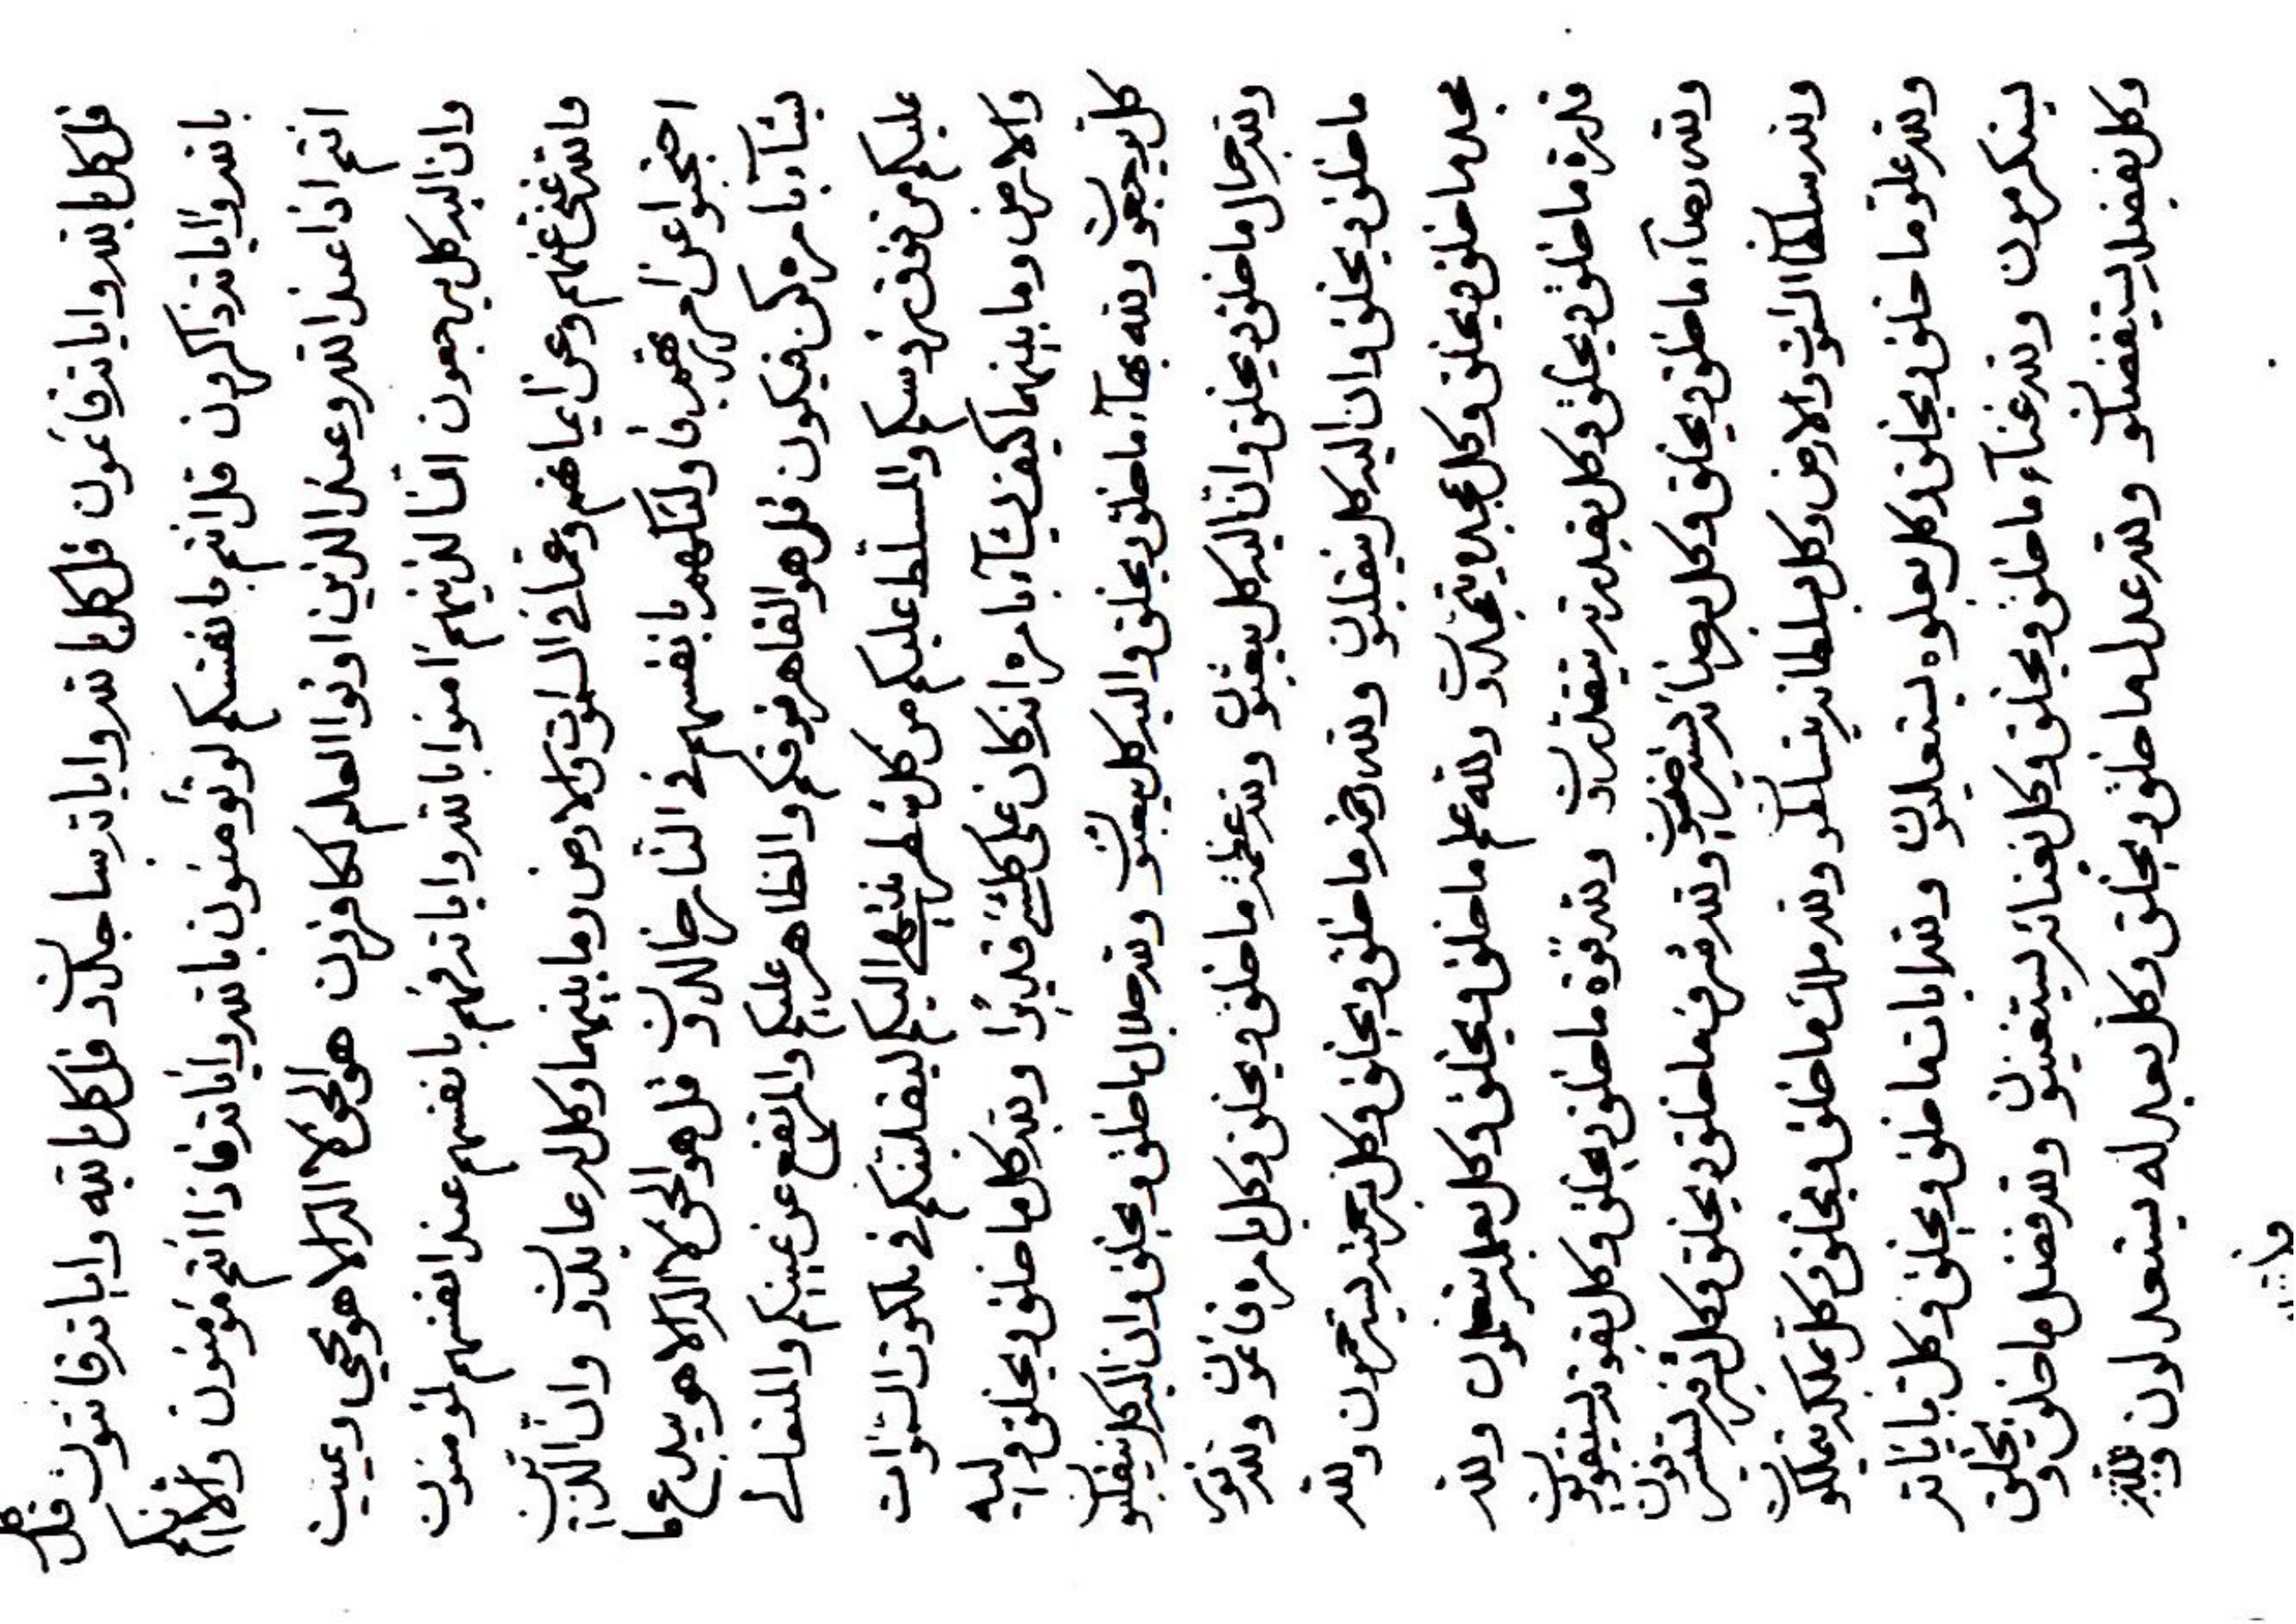 قل كل بالله واياته قائمون قل كل بالله واياته ساجدون قل كل بالله واياته قانتون قل كل
بالله واياته ذاكرون قل انتم بانفسكم لو تؤمنون بالله واياته فاذا انتم مؤمنون والا انكم
انتم اذا عند الله وعند الذين اوتوا العلم لكافرون هو الحق لا اله الا هو يحيي ويميت
وان اليه كل يرجعون الذينهم امنوا بالله واياته فهم بانفسهم عند انفسهم لمؤمنون
والله غني عنهم وعن ايمانهم وعما في السموات والارض وما بينهما وكل له عابدون وان الذين
احتجبوا عن امر ربهم فاولئكهم بانفسهم في النار خالدون قل هو الحق لا اله الا هو يبدع ما
يشآء بامره كن فيكون قل هو القاهر فوقكم والظاهر عليكم والمرتفع عن غيبكم والمتعالي
عليكم من فوق رؤسكم والمسلط عليكم من كل شطر ينتهي اليكم ليقلبنكم في ملكوت السموات
والارض وما بينهما كيف يشآء بامره انه كان على كلشئ قديرا ولله كل ما خلق ويخلق واليه
كل يرجعون ولله بهآء ما خلق ويخلق واليه كل يبعثون ولله جلال ما خلق ويخلق وان اليه كل ينقلبون
ولله جمال ما خلق ويخلق وان اليه كل يبعثون ولله عظمة ما خلق ويخلق وكل بامره قائمون ولله نور
ما خلق ويخلق وان اليه كل ينقلبون ولله رحمة ما خلق ويخلق وكل برحمته يسترحمون ولله
مجد ما خلق ويخلق وكل بمجده يتمجدون ولله علم ما خلق ويخلق وكل بعلمه يتعلمون ولله
قدرة ما خلق ويخلق وكل بقدرته يتقدرون ولله قوة ما خلق ويخلق وكل بقوته يستقويون
ولله رضآء ما خلق ويخلق وكل برضائه يسترضيون ولله شرف ما خلق ويخلق وكل بشرفه يستشرفون
ولله سلطان السموات والارض وكل بسلطانه يتسلطون ولله ملك ما خلق ويخلق وكل بملكه يتملكون
ولله علو ما خلق ويخلق وكل بعلوه يستعليون ولله ايات ما خلق ويخلق وكل باياته
يتكرمون ولله غنآء ما خلق ويخلق وكل بغنائه يستغنيون ولله فضل ما خلق ويخلق
وكل بفضله يستفضلون ولله عدل ما خلق ويخلق وكل بعدله يستعدلون ولله